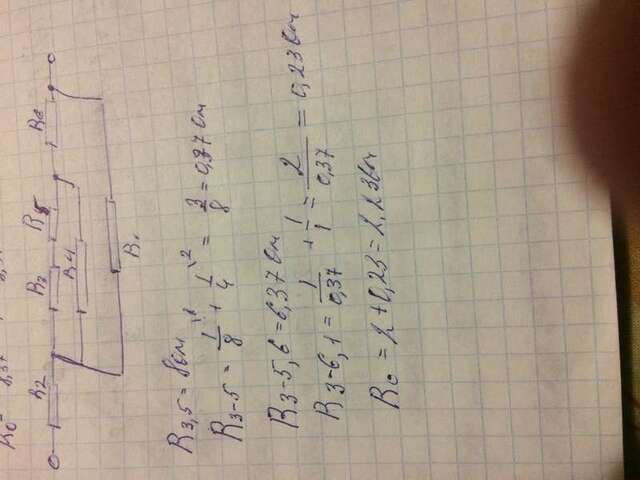 R2 R3 R5 R6
R4
R1
R3,5 = 8 Ом
R3-5 = 1/8 + 1/4 = 3/8 = 0,37 Ом
R3-5,6 = 6,37 Ом
R3-6,1 = 1/0,37 + 1/1 = 2/0,37 = 0,23 Ом
R0 = 2 + 0,23 = 2,23 Ом